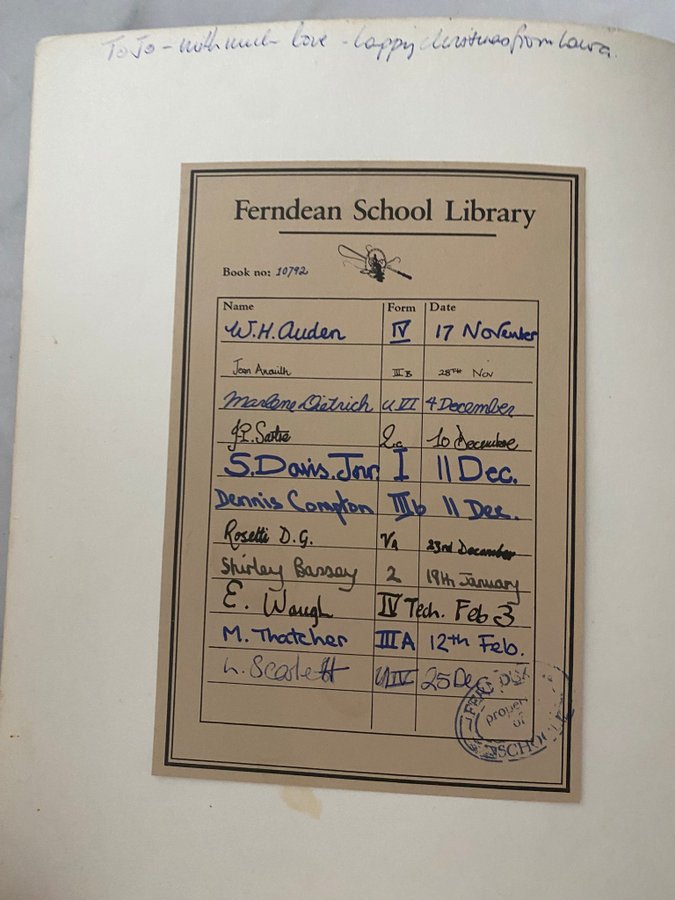 To Jo - with much love - happy Christmas from Laura.
Ferndean School Library
Book no: 10792
Name Form Date
W.H. Auden IV 17 November
Jean Anouilh III B 28TH Nov
Marlene Dietrich U VI 4 December
J.P. Sartre 2c 10 Decembre
S. Davis. Jnr. I 11 Dec.
Dennis Compton IIIb 11 Dec.
Rosetti D.G. VA 23rd December
Shirley Bassey 2 19th January
E. Waugh IV Tech. Feb 3
M. Thatcher IIIA 12th Feb.
Scarlett UIV 25 Dec
property
OF
SCHOOL